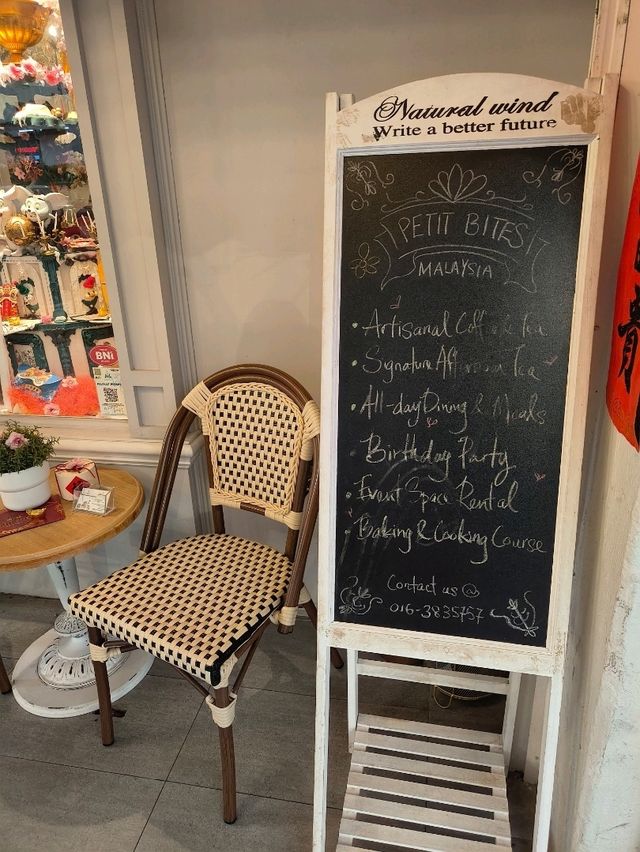 Natural wind
Write a better future
PETIT BITES
MALAYSIA
• Artisanal Coffee & Tea
• Signature Afternoon Tea
• All-day Dining & Meals
Birthday Party
• Event Space Rental
• Baking & Cooking Course
Contact us @
016-3835757
BNI